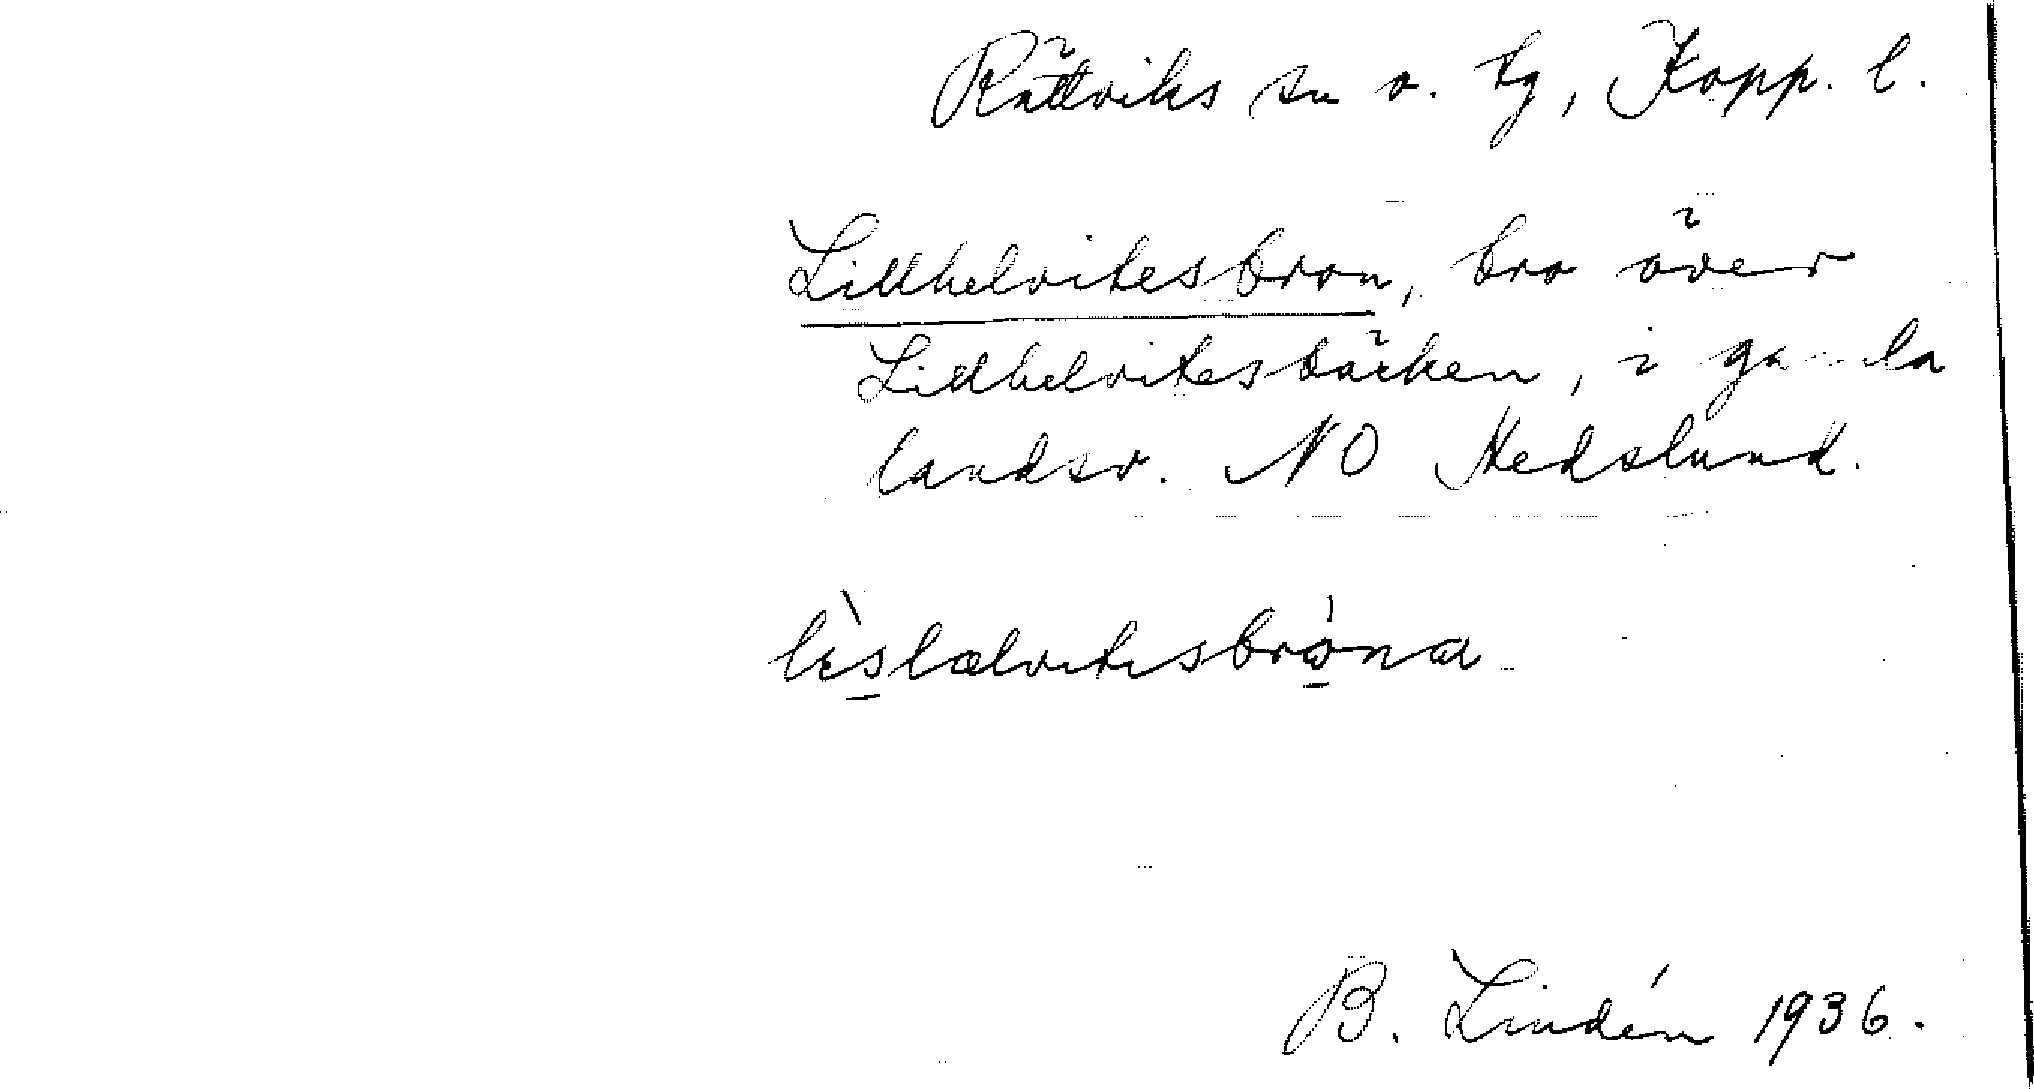 Rättviks sn o. tg, Kopp. l.
Lillhelvitesbron, bro över
Lillhelvitesbäcken, i gamla
landsv. NO Hedslund.
lìslælvitisbróna
B. Lindén 1936.